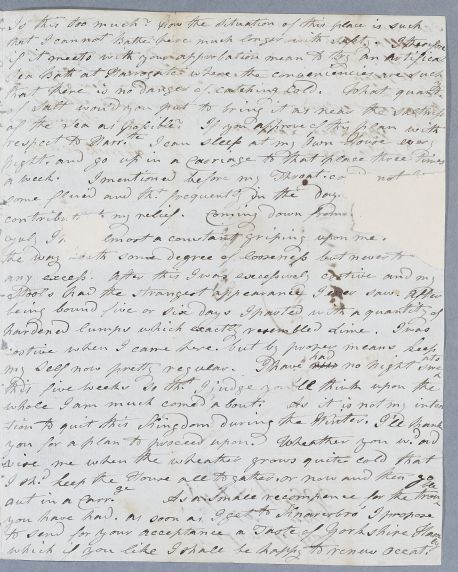 Is this too much? Now the situation of this place is such
that I cannot Bathe here much longer with safety. I therefore
if it meets with your approbation mean to try an artificial
Sea Bath at Harrogate where the conveniences are such
that there is no danger of catching Cold. What quanti
of Salt would you put to bring it as near the Saltness
of the Sea as Possible? If you approve of this plan with
respect to Harro: I can sleep at my own House every
Night and go up in a Carriage to that place three times
a week. I mentioned before my Throat not
some flued and tht frequently in the day
contribut to my relief. Coming down from
I almost a constant griping upon me.
the way with some degree of looseness but never to
any excess. After this I was excessively costive and my
Stools had the strangest appearance I ever saw. After
being bound five or six days I parted with a quantity of
hardened lumps which exactly resembled Lime. I was
costive when I came here. but by proper means keep
my self now pretty regular. I have had no Night
this five weeks So tht I judge you'll think upon the
whole I am much come about. As it is not my inten
tion to quit this Kingdom during the Winter, I'll thank
you for a plan to proceed upon. Wheather you wd ad
vise me when the wheather grows quite cold that
I shd keep the House all together, or now and then go
out in a Carrge As a small recompence for the trou
ble
you have had. as soon as I get to Knaresbro' I propose
to send for your acceptance a Taste of Yorkshire Ham
which if you like I shall be happy to renew occat